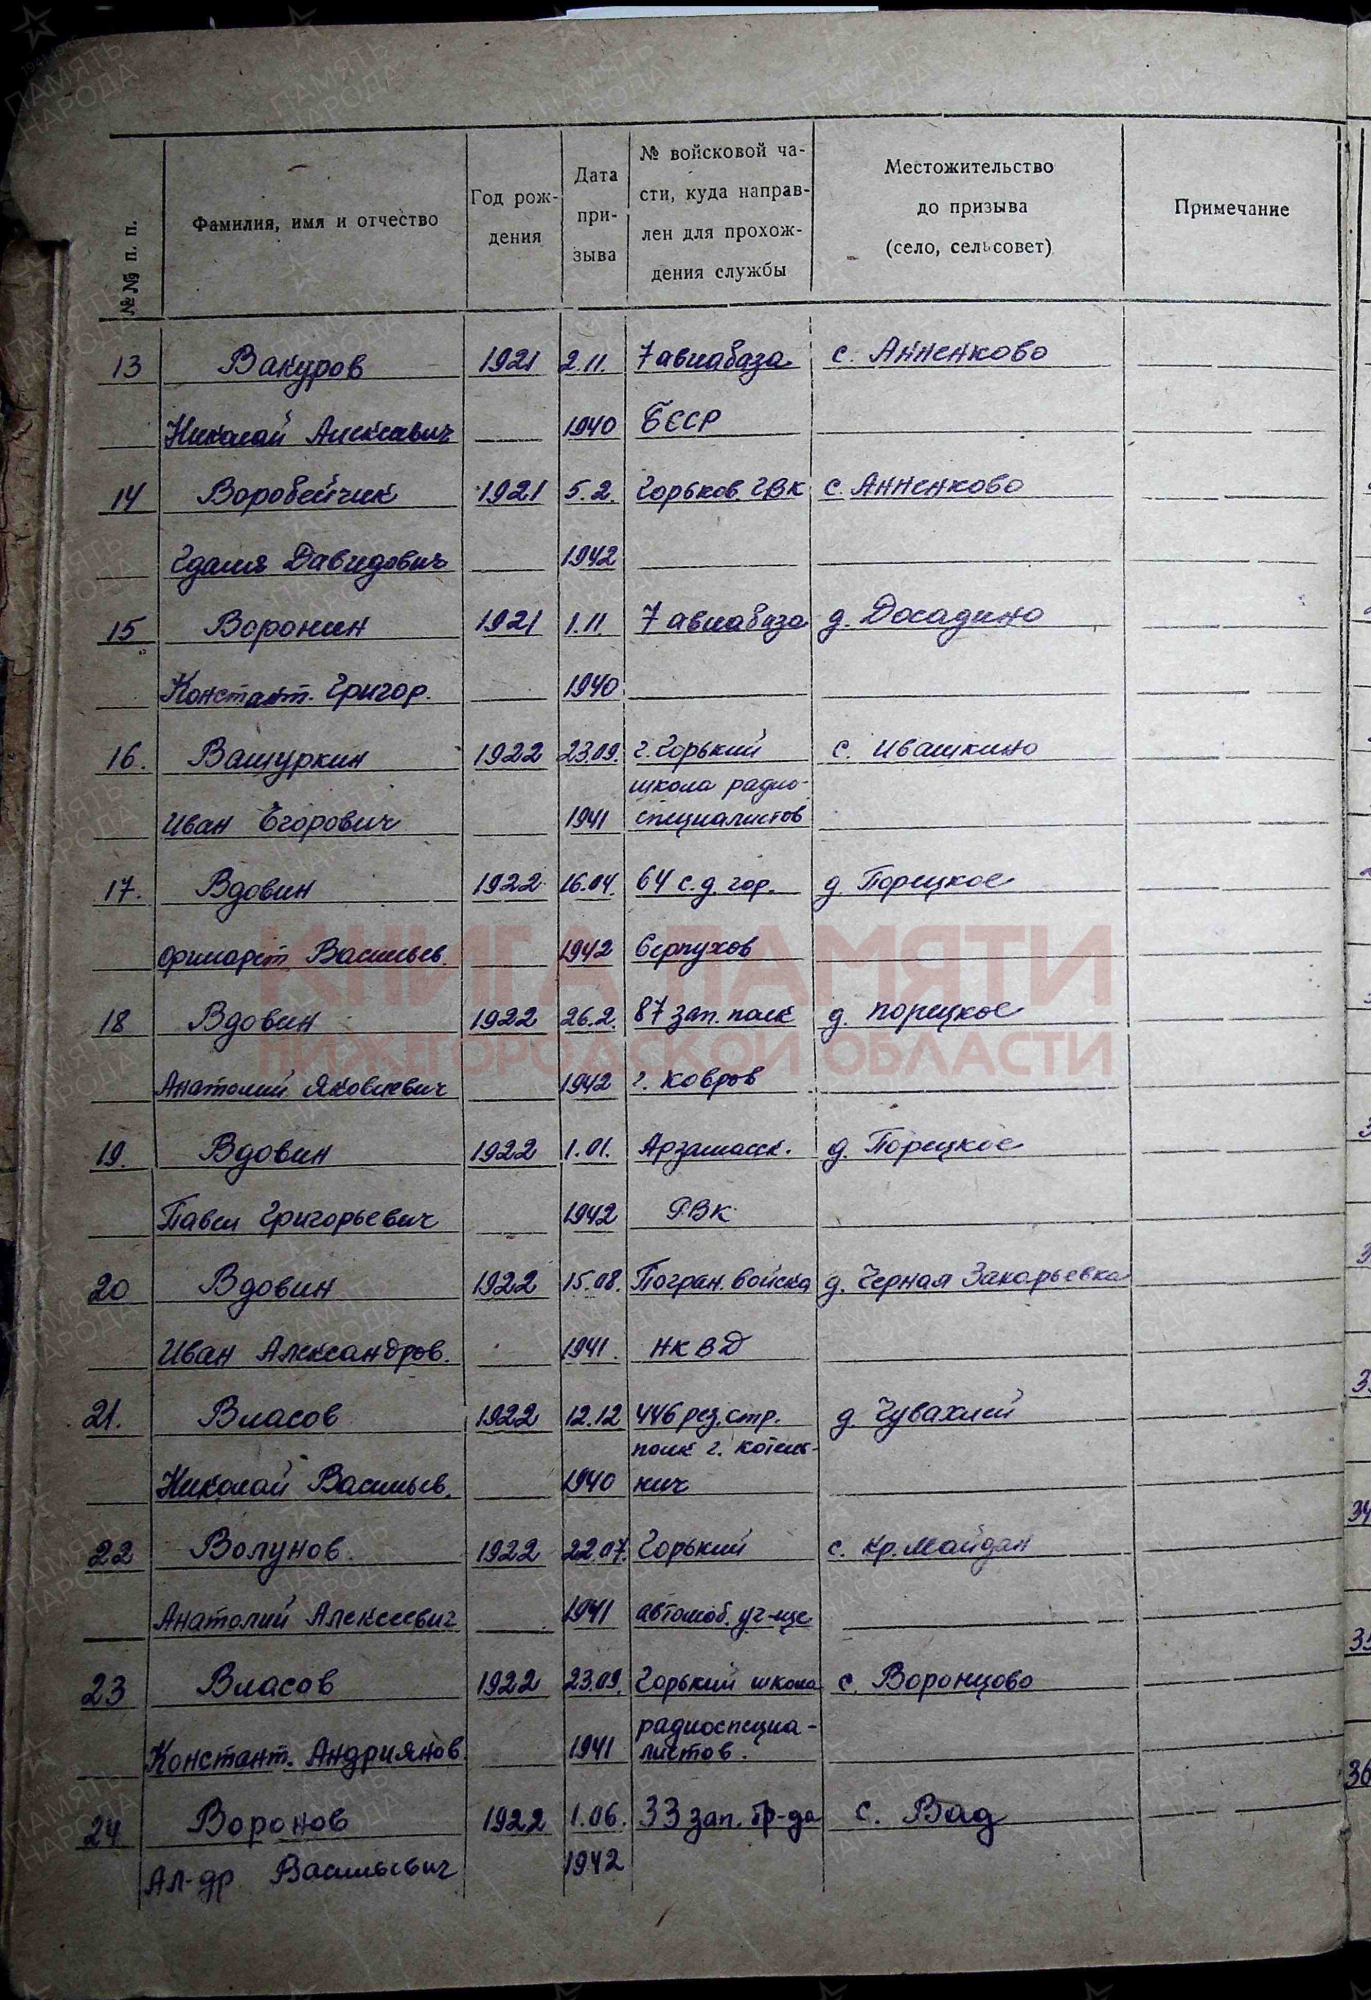 №№ п. п.
Фамилия, имя и отчество
Год рож-
дения
Дата
при-
зыва
№ войсковой ча-
сти, куда направ-
лен для прохож-
дения службы
Местожительство
до призыва
(село, сельсовет)
Примечание
13 Вакуров 1921 2.11. 7 авиабаза с. Анненково
Николай Алексеевич 1940 БССР
14 Воробейчик 1921 5.2. Горьков. ГВК с. Анненково
Гдаля Давидович 1942
15 Воронин 1921 1.11 7 авиабаза д. Досадино
Констант. Григор. 1940
16. Вашуркин 1922 23.09. г. Горький с. Ивашкино
школа радио-
Иван Егорович 1941 специалистов
17. Вдовин 1922 16.04. 64 с.д. гор. д. Порецкое
Васильев. 1942 Серпухов
КНИГА ПАМЯТИ
НИЖЕГОРОДСКОЙ ОБЛАСТИ
18 Вдовин 1922 26.2. 87 зап. полк д. Порецкое
Анатолий Яковлевич 1942 г. Ковров
19. Вдовин 1922 1.01. Арзамасск. д. Порецкое
Павел Григорьевич 1942 РВК
20 Вдовин 1922 15.08. Погран. войска д. Черная Захарьевка
Иван Александров. 1941. НКВД
21. Власов 1922 12.12 446 рез. стр. д. Чувахлей
полк г. Котель-
Николай Васильев. 1940 нич
22 Волунов 1922 22.07. Горький с. Кр. Майдан
Анатолий Алексеевич 1941 автомоб. уч-ще
23 Власов 1922 23.09. Горький школа с. Воронцово
радиоспециа-
Констант. Андриянов. 1941 листов.
24 Воронов 1922 1.06. 33 зап. бр-да с. Вад
Ал-др Васильевич 1942
ПАМЯТЬ
НАРОДА